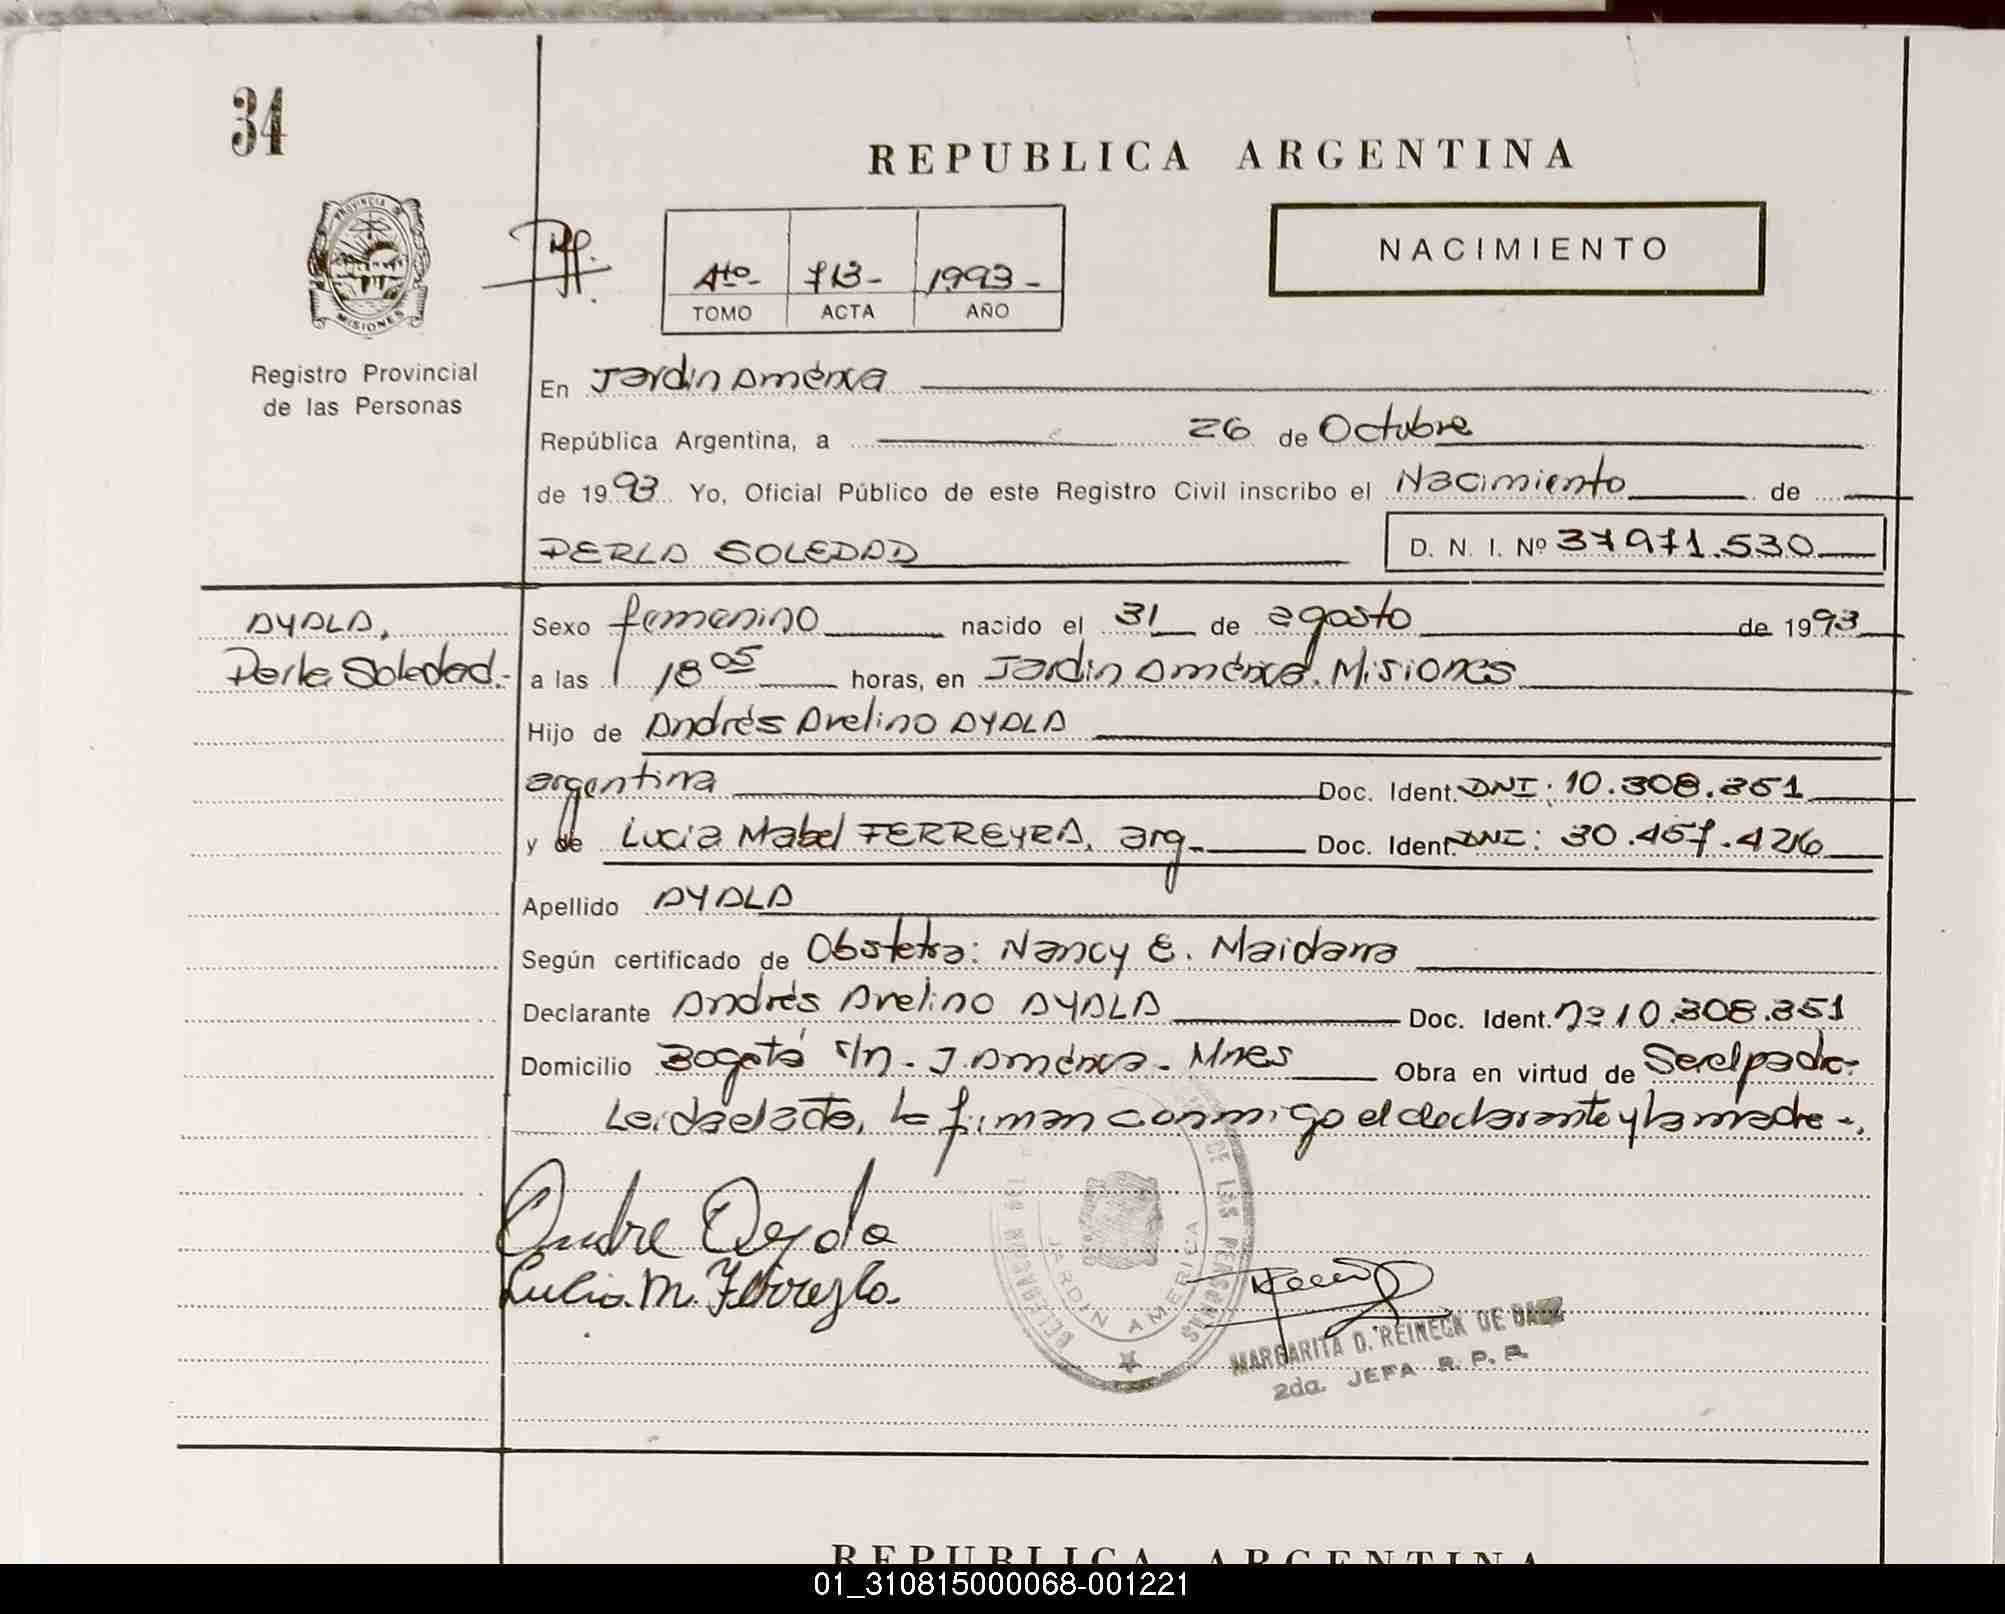 34
REPUBLICA ARGENTINA
PROVINCIA DE
MISIONES
NACIMIENTO
Ato- 713- 1993-
TOMO ACTA AÑO
Registro Provincial
de las Personas
En Jardín América
República Argentina, a 26 de Octubre
de 1993 Yo, Oficial Público de este Registro Civil inscribo el Nacimiento de
PERLA SOLEDAD D. N. I. Nº 37971.530
AYALA, Sexo femenino nacido el 31 de agosto de 1993
Perla Soledad.- a las 18 05 horas, en Jardín América. Misiones
Hijo de Andrés Avelino AYALA
argentina Doc. Ident. DNI: 10.308.351
y de Lucia Mabel FERREYRA, arg. Doc. Ident. DNI: 30.457.426
Apellido AYALA
Según certificado de Obstetra: Nancy E. Maidana
Declarante Andrés Avelino AYALA Doc. Ident. nº 10.308.351
Domicilio Bogotá s/n - J. América - Mnes Obra en virtud de Ser el padre.
Leída el acta, la firman conmigo el declarante y la madre -.
Andre Ayala
Lucia. M. Ferreyra.
DE LAS PERSONAS
JARDIN AMERICA
MARGARITA D. REINECK DE
2da. JEFA R. P. P.
REPUBLICA ARGENTINA
01_310815000068-001221